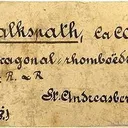 alkspath, Ca CO
xagonal - rhomboëd
R. & R
St. Andreasber